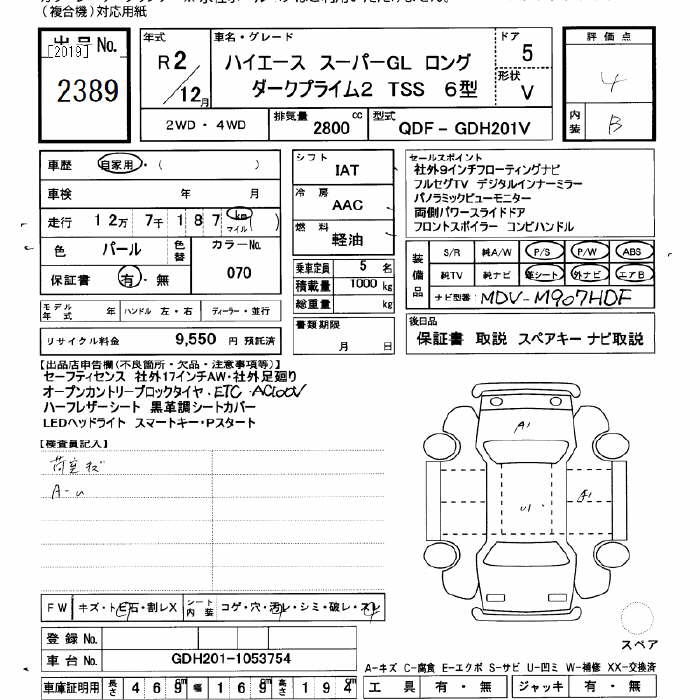 (複合機)対応用紙
出品No.
[2019]
2389
年式 R2/12月
車名・グレード
ハイエース スーパーGL ロング
ダークプライム2 TSS 6型
ドア 5
形状 V
評価点
4
内装 B
2WD・4WD
排気量 2800 cc
型式 QDF-GDH201V
車歴 自家用・( )
車検 年 月
走行 12万7千187 km マイル( )
色 パール 色替 カラーNo. 070
保証書 有・無
シフト IAT
冷房 AAC
燃料 軽油
乗車定員 5 名
積載量 1000 kg
総重量 kg
書類期限 月 日
セールスポイント
社外9インチフローティングナビ
フルセグTV デジタルインナーミラー
パノラミックビューモニター
両側パワースライドドア
フロントスポイラー コンビハンドル
装備品
S/R 純A/W P/S P/W ABS
純TV 純ナビ 革シート 外ナビ エアB
ナビ型番 MDV-M907HDF
モデル年式 年 ハンドル 左・右 ディーラー・並行
リサイクル料金 9,550 円 預託済
後日品
保証書 取説 スペアキー ナビ取説
【出品店申告欄(不良箇所・欠品・注意事項等)】
セーフティセンス 社外17インチAW・社外足廻り
オープンカントリーブロックタイヤ.ETC.AC100V
ハーフレザーシート 黒革調シートカバー
LEDヘッドライト スマートキー・Pスタート
【検査員記入】
荷室キズ
A-U
A1
U1
A1
FW キズ・トビ石・割レX シート内装 コゲ・穴・汚レ・シミ・破レ・スレ
登録No.
車台No. GDH201-1053754
スペア
A-キズ C-腐食 E-エクボ S-サビ U-凹ミ W-補修 XX-交換済
車庫証明用 長さ 469cm 幅 169cm 高さ 194cm
工具 有・無 ジャッキ 有・無